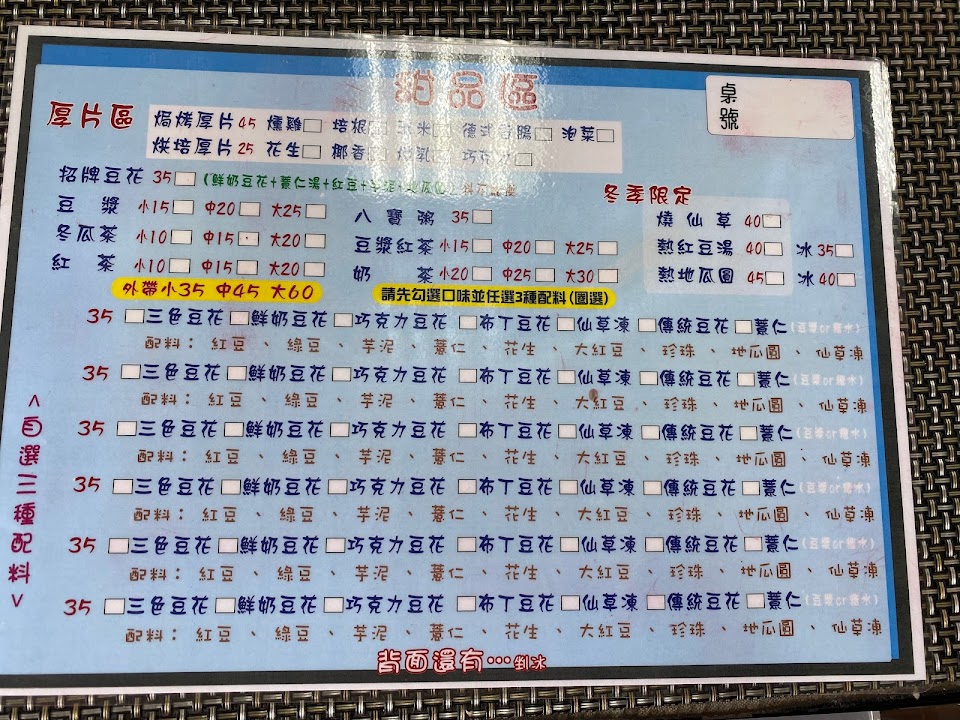 甜品區
桌號
厚片區
焗烤厚片45 燻雞□ 培根□ 玉米□ 德式香腸□ 泡菜□
烘培厚片25 花生□ 椰香□ 煉乳□ 巧克力□
招牌豆花 35□ (鮮奶豆花+薏仁湯+紅豆+芋泥+地瓜圓)
冬季限定
豆 漿 小15□ 中20□ 大25□ 八寶粥 35□ 燒仙草 40□
冬瓜茶 小10□ 中15□ 大20□ 豆漿紅茶 小15□ 中20□ 大25□ 熱紅豆湯 40□ 冰35□
紅 茶 小10□ 中15□ 大20□ 奶 茶 小20□ 中25□ 大30□ 熱地瓜圓 45□ 冰40□
外帶小35 中45 大60 請先勾選口味並任選3種配料(圈選)
<自選三種配料>
35 □三色豆花□鮮奶豆花□巧克力豆花□布丁豆花□仙草凍□傳統豆花□薏仁(豆漿or糖水)
配料：紅豆、綠豆、芋泥、薏仁、花生、大紅豆、珍珠、地瓜圓、仙草凍
35 □三色豆花□鮮奶豆花□巧克力豆花□布丁豆花□仙草凍□傳統豆花□薏仁(豆漿or糖水)
配料：紅豆、綠豆、芋泥、薏仁、花生、大紅豆、珍珠、地瓜圓、仙草凍
35 □三色豆花□鮮奶豆花□巧克力豆花□布丁豆花□仙草凍□傳統豆花□薏仁(豆漿or糖水)
配料：紅豆、綠豆、芋泥、薏仁、花生、大紅豆、珍珠、地瓜圓、仙草凍
35 □三色豆花□鮮奶豆花□巧克力豆花□布丁豆花□仙草凍□傳統豆花□薏仁(豆漿or糖水)
配料：紅豆、綠豆、芋泥、薏仁、花生、大紅豆、珍珠、地瓜圓、仙草凍
35 □三色豆花□鮮奶豆花□巧克力豆花□布丁豆花□仙草凍□傳統豆花□薏仁(豆漿or糖水)
配料：紅豆、綠豆、芋泥、薏仁、花生、大紅豆、珍珠、地瓜圓、仙草凍
35 □三色豆花□鮮奶豆花□巧克力豆花□布丁豆花□仙草凍□傳統豆花□薏仁(豆漿or糖水)
配料：紅豆、綠豆、芋泥、薏仁、花生、大紅豆、珍珠、地瓜圓、仙草凍
背面還有…剉冰